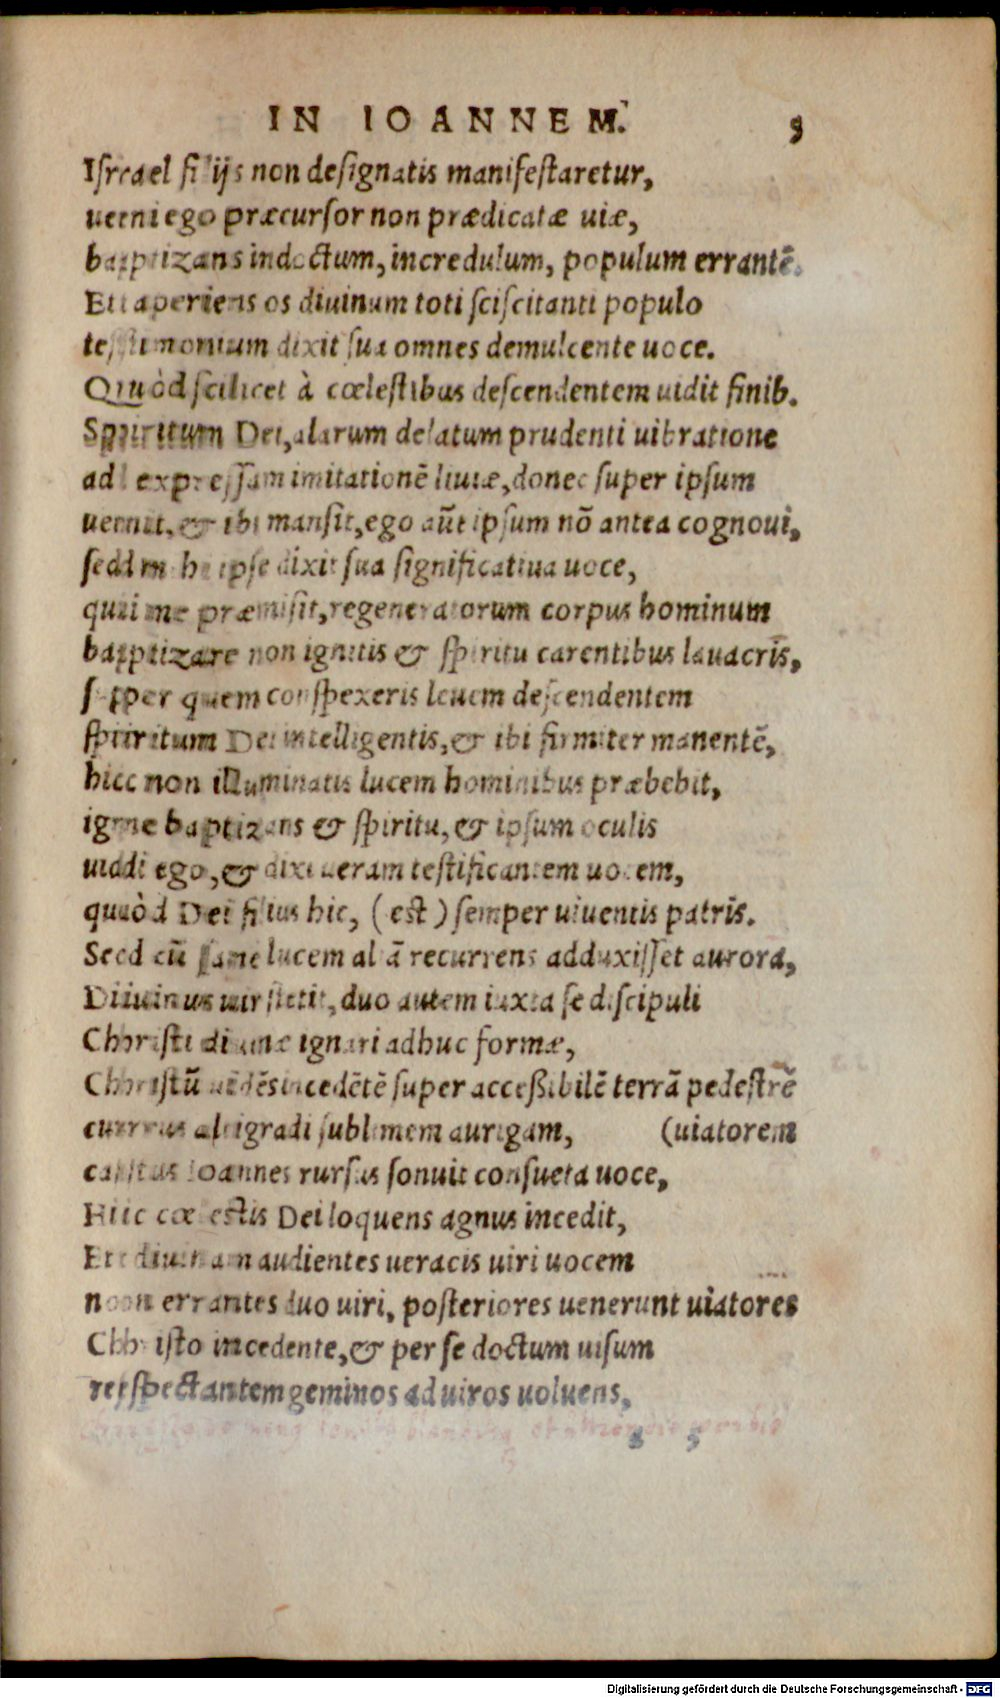 IN IOANNEM. 9
Israel filijs non designatis manifestaretur,
ueni ego præcursor non prædicatæ uiæ,
baptizans indoctum, incredulum, populum errantē.
Et aperiens os diuinum toti sciscitanti populo
testimonium dixit sua omnes demulcente uoce.
Quòd scilicet à cœlestibus descendentem uidit finib.
Spiritum Dei, alarum delatum prudenti uibratione
ad expressam imitationē liuiæ, donec super ipsum
uenit, & ibi mansit, ego aūt ipsum nō antea cognoui,
sed mihi ipse dixit sua significatiua uoce,
qui me præmisit, regeneratorum corpus hominum
baptizare non ignitis & spiritu carentibus lauacris,
super quem conspexeris leuem descendentem
spiritum Dei intelligentis, & ibi firmiter manentē,
hic non illuminatis lucem hominibus præbebit,
igne baptizans & spiritu, & ipsum oculis
uidi ego, & dixi ueram testificantem uocem,
quòd Dei filius hic, (est) semper uiuentis patris.
Sed cū sane lucem al ā recurrens adduxisset aurora,
Diuinus uir stetit, duo autem iuxta se discipuli
Christi diuinæ ignari adhuc formæ,
Christū uidēs incedētē super accessibilē terrā pedestrē
currus altigradi sublimem aurigam, (uiatorem
castus Ioannes rursus sonuit consueta uoce,
Hic cœlestis Dei loquens agnus incedit,
Et diuinam audientes ueracis uiri uocem
non errantes duo uiri, posteriores uenerunt uiatores
Christo incedente, & per se doctum uisum
respectantem geminos ad uiros uoluens,
a 5
Digitalisierung gefördert durch die Deutsche Forschungsgemeinschaft - DFG